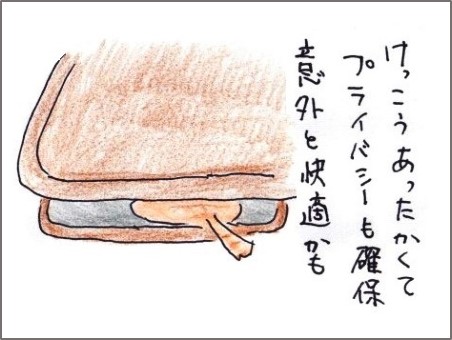 けっこうあったかくて
プライバシーも確保
意外と快適かも